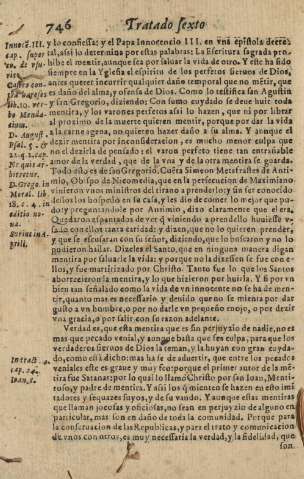 746 Tratado sexto
Innoce. III.
cap. super
eo, de usu-
ris.
lib. 10. ver-
bo Menda-
cium.
D. Augus.
Psal. 5.
D. Grego. in
Moral. lib.
18. c. 4. in
editio no-
ua.
Surius in A-
prili.
In tract. 4.
cap. 14.
Ioan. 8.
y lo confiessa; y el Papa Innocencio III. en vna epistola decre
tal, assi lo determina por estas palabras: La Escritura sagrada pro-
hibe el mentir, aunque sea por saluar la vida de otro. Y este ha sido
siempre en la Yglesia el espiritu de los perfetos sieruos de Dios,
antes querer incurrir qualquier daño temporal que no mẽtir, que
es daño del alma, y ofensa de Dios. Como lo testifica san Agustin
y san Gregorio, diziendo: Con sumo cuydado se deue huir toda
mentira, y los varones perfetos assi lo hazen, que ni por librar
al proximo de la muerte quieren mentir, porque por dar la vida
a la carne agena, no quieren hazer daño a su alma. Y aunque el
dezir mentira por inconsideracion, es mucho menor culpa que
no el dezirla de pensado: el varon perfeto tiene tan entrañable
amor de la verdad, que de la vna y de la otra mentira se guarda.
Todo esto es de san Gregorio. Cuẽta Simeon Metafrastes de Anti-
mio, Obispo de Nicomedia, que en la persecucion de Maximiano
vinieron vnos ministros del tirano a prenderlo; y sin ser conocido
dellos los hospedó en su casa, y les dio de comer lo mejor que pu-
do: y preguntandole por Antimio, dixo claramente que el era.
Quedaron espantados de ver q̃ viniendo a prendello huuiesse v-
sado con ellos tanta caridad: y dizen, que no lo quieren prender,
y que se escusaran con su señor, diziendo, que lo buscaron y no lo
pudieron hallar. Dizeles el Santo, que en ninguna manera digan
mentira por saluarle la vida: y porque no la dixessen se fue con e-
llos, y fue martirizado por Christo. Tanto fue lo que los Santos
aborrecieron la mentira, y lo que hizieron por huirla. Y si por vn
bien tan señalado como la vida de vn innocente no se ha de men-
tir, quanto mas es necessario y deuido que no se mienta por dar
gusto a vn hombre, o por no darle vn pequeño mojo, o por dezir
vna gracia, o por salir con su razon adelante.
Verdad es, que esta mentira que es sin perjuyzio de nadie, no es
mas que pecado venial, y aunque basta que sea culpa, para que los
verdaderos sieruos de Dios la teman, y la huyan con gran cuyda-
do, como està dicho: mas ha se de aduertir, que entre los pecados
veniales este es graue y muy feo: porque el primer autor de la mẽ-
tira fue Satanas: por lo qual lo llamó Christo por san Iuan, Menti-
roso, y padre de mentira. Y assi los q̃ mienten se hazen en esto imi-
tadores y sequazes suyos, y de su vando. Y aunque estas mentiras
que llaman jocosas y oficiosas, no sean en perjuyzio de alguno en
particular, mas son en daño de toda la comunidad. Porque para
la conseruacion de las Republicas, y para el trato y comunicacion
de vnos con otros, es muy necessaria la verdad, y la fidelidad, que
son